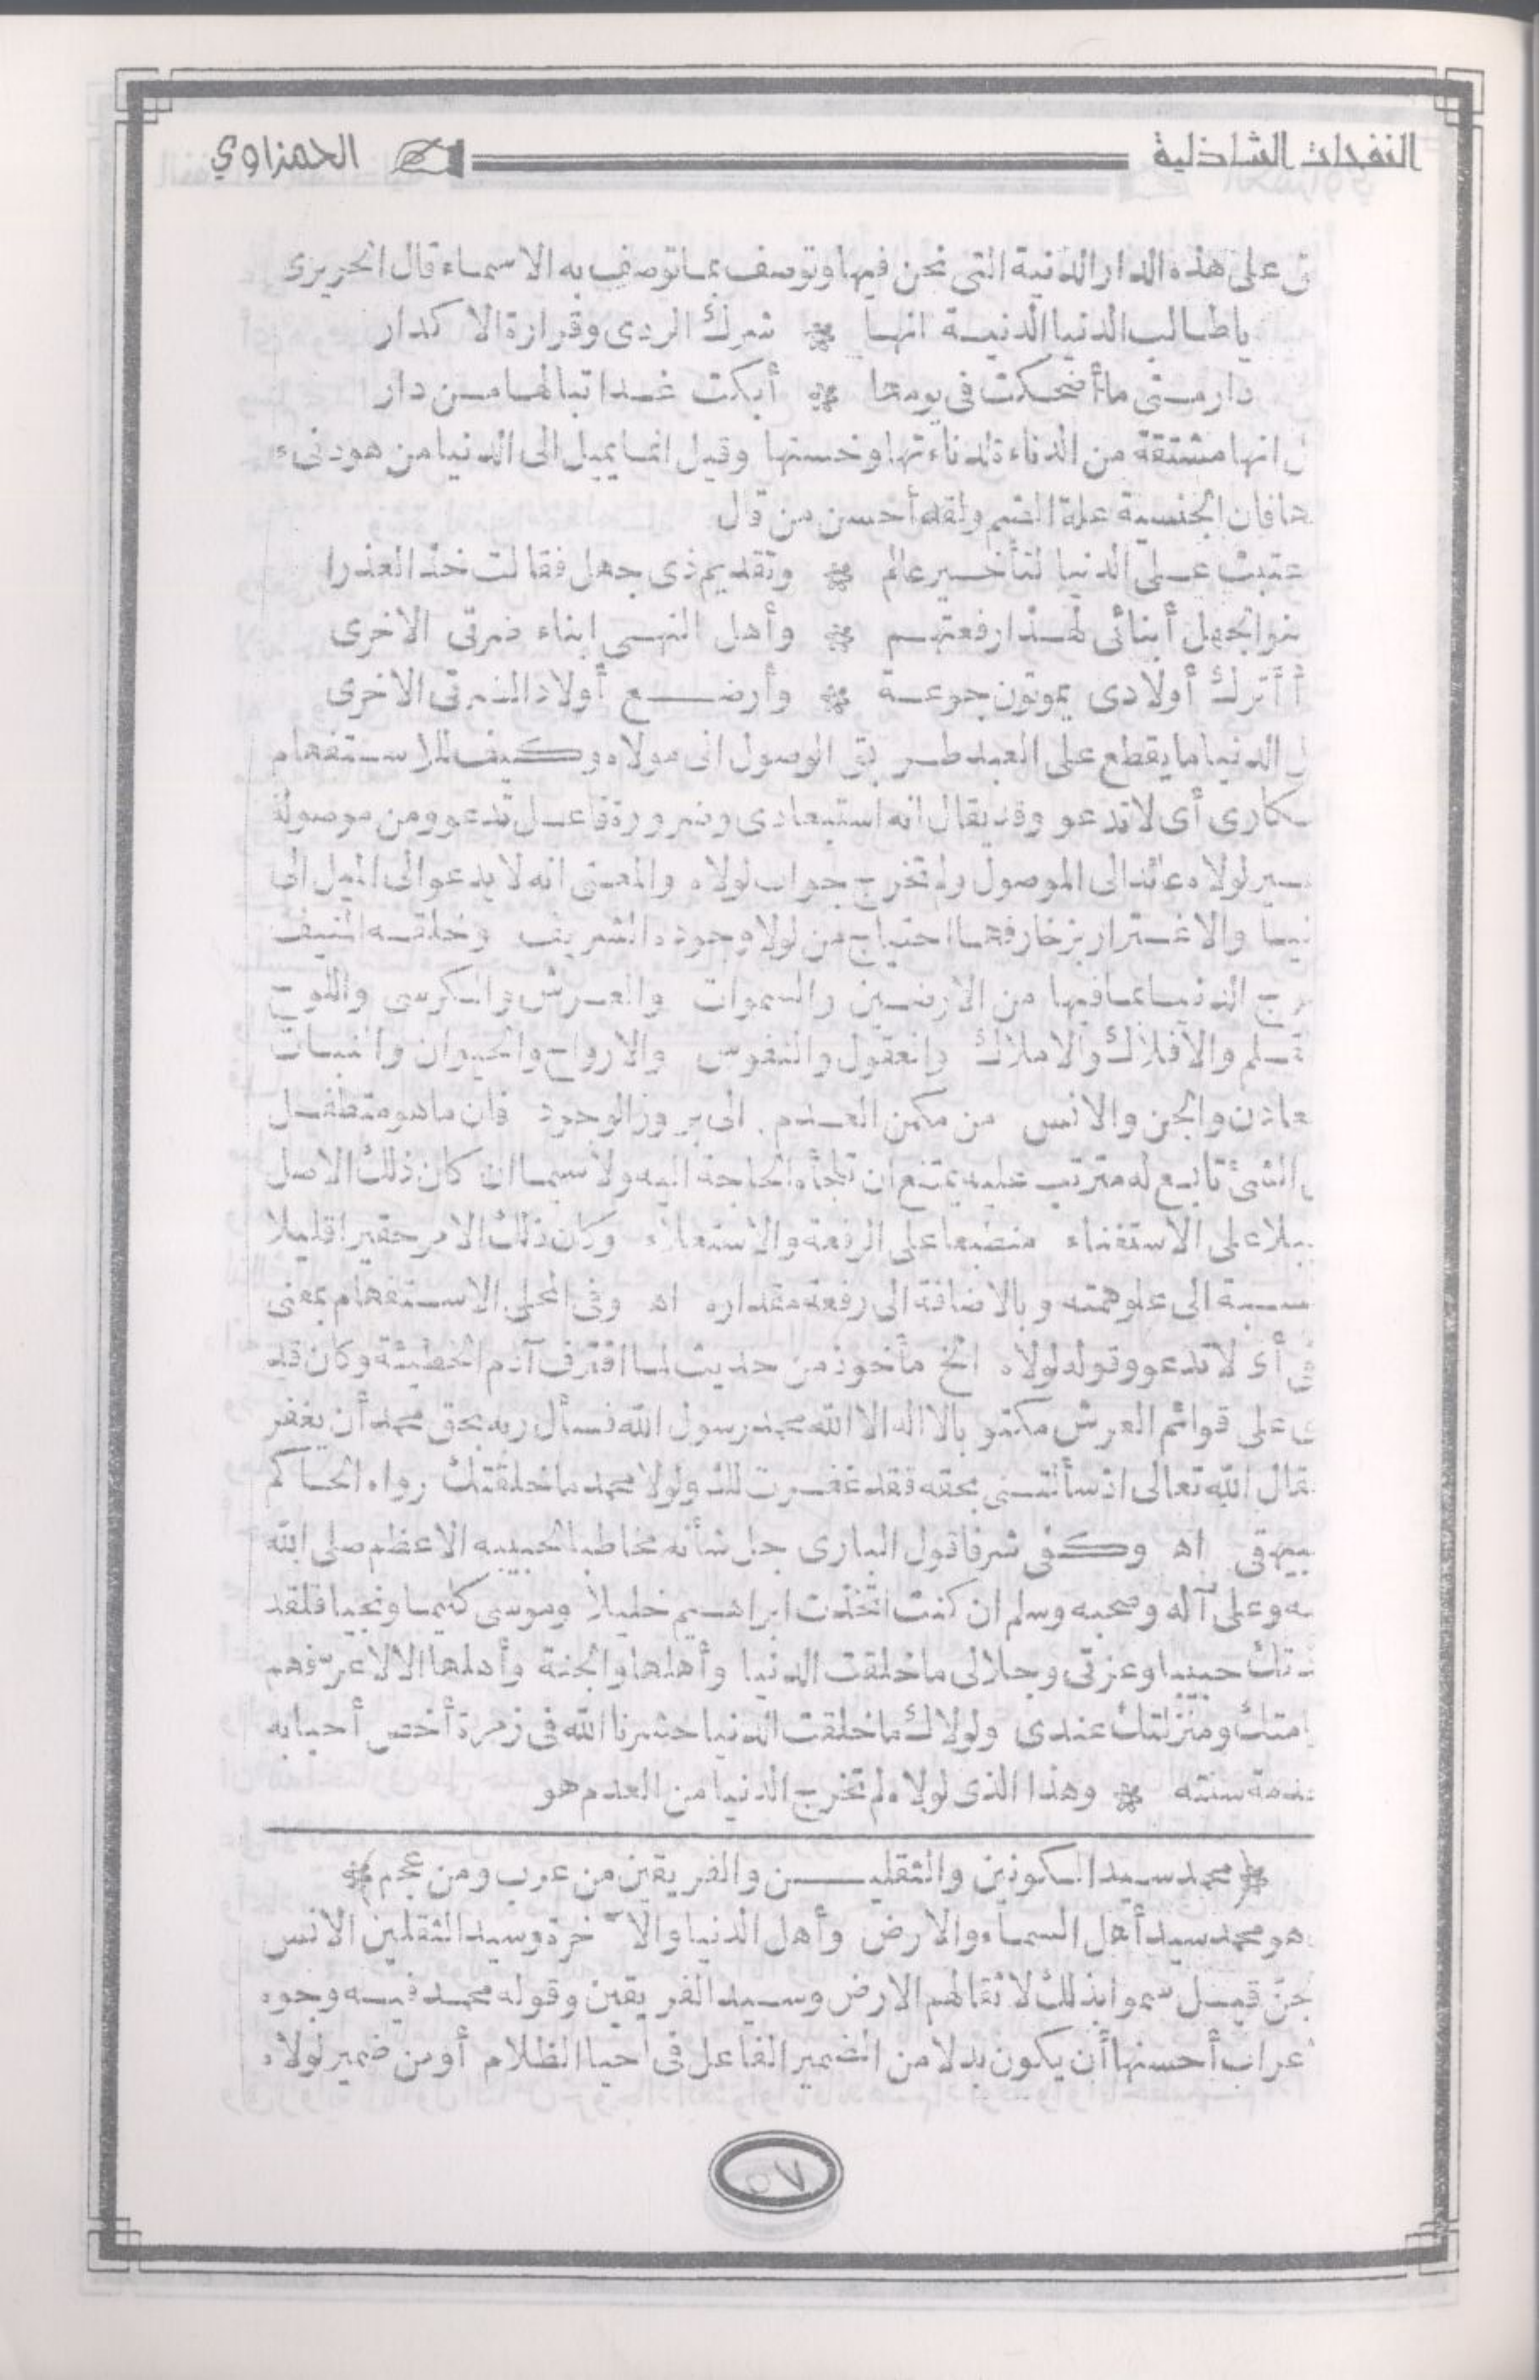 النفحات الشاذلية الحمزاوي
على هذه الدار الدنية التى نحن فيها وتوصف بما توصف به الاسماء قال الحريرى
ياطالب الدنيا الدنية انها * شرك الردى وقرارة الاكدار
دار متى ما أضحكت فى يومها * أبكت غدا تبا لها من دار
انها مشتقة من الدناءة لدناءتها وخستها وقيل انما يميل الى الدنيا من هو دنىء
فان الجنسية علة الضم ولقد أحسن من قال
عتبت على الدنيا لتأخير عالم * وتقديم ذى جهل فقالت خذ العذرا
بنو الجهل أبنائى لهذا رفعتهم * وأهل النهى ابناء ضرتى الاخرى
أأترك أولادى يموتون جوعة * وأرضع أولاد الضرتى الاخرى
الدنيا ما يقطع على العبد طريق الوصول الى مولاه وكيف للاستفهام
أى لا تدعو وقد يقال انه استبعادى وضرورة فاعل تدعو ومن موصولة
لولاه عائد الى الموصول ولم تخرج جواب لولاه والمعنى انه لا يدعو الى الميل الى
والاغترار بزخارفها احتياج من لولا وجوده الشريف وخلقه المنيف
الدنيا بما فيها من الارضين والسموات والعرش والكرسى واللوح
والافلاك والاملاك والعقول والنفوس والارواح والحيوان والنبات
والجن والانس من مكمن العدم الى بروز الوجود فان ما هو متطفل
الشئ تابع له مترتب عليه يمتنع ان تلجأه الحاجة اليه ولا سيما ان كان ذلك الاصل
على الاستغناء منطبعا على الرفعة والاستعلاء وكان ذلك الامر حقيرا قليلا
الى علو همته وبالاضافة الى رفعة مقداره اه وفى المحلى الاستفهام بمعنى
أى لا تدعو وقوله لولاه الخ مأخوذ من حديث لما اقترف آدم الخطيئة وكان قد
على قوائم العرش مكتوبا لا اله الا الله محمد رسول الله فسأل ربه بحق محمد أن يغفر
الله تعالى اذ سألتنى بحقه فقد غفرت لك ولولا محمد ما خلقتك رواه الحاكم
اه وكفى شرفا قول البارى جل شأنه مخاطبا لحبيبه الاعظم صلى الله
وعلى آله وصحبه وسلم ان كنت اتخذت ابراهيم خليلا وموسى كليما ونجيا فلقد
حبيبا وعزتى وجلالى ما خلقت الدنيا وأهلها والجنة وأهلها الا لاعرفهم
ومنزلتك عندى ولولاك ما خلقت الدنيا حشرنا الله فى زمرة أخص أحبابه
سنته * وهذا الذى لولاه لم تخرج الدنيا من العدم هو
*(محمد سيد الكونين والثقليـن والفريقين من عرب ومن عجم)*
هو محمد سيد أهل السماء والارض وأهل الدنيا والآخرة وسيد الثقلين الانس
قيل سموا بذلك لاثقالهم الارض وسيد الفريقين وقوله محمد فيه وجوه
أحسنها أن يكون بدلا من الضمير الفاعل فى أحيا الظلام أو من ضمير لولاه
٥٧